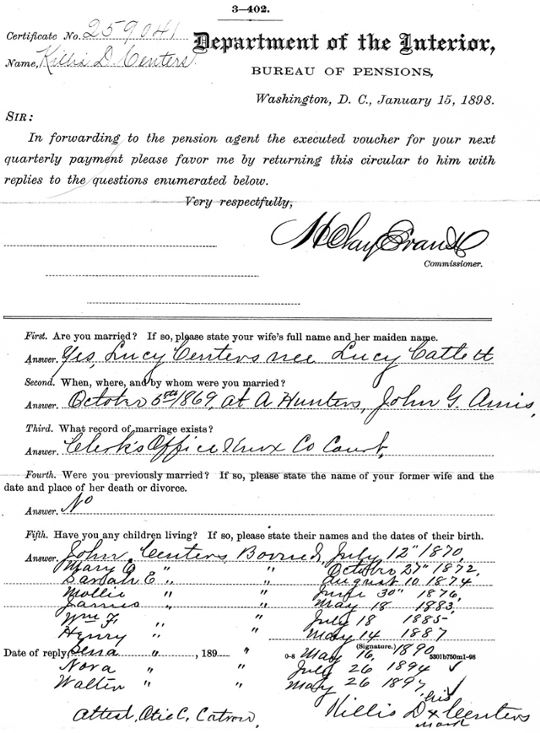 3—402.
Certificate No. 259041
Department of the Interior,
Name, Killis D. Centers
BUREAU OF PENSIONS,
Washington, D. C., January 15, 1898.
SIR:
In forwarding to the pension agent the executed voucher for your next
quarterly payment please favor me by returning this circular to him with
replies to the questions enumerated below.
Very respectfully,
H Clay Evans
Commissioner.
First. Are you married? If so, please state your wife's full name and her maiden name.
Answer. Yes, Lucy Centers nee Lucy Catlett
Second. When, where, and by whom were you married?
Answer. October 5th 1869, at A Hunters, John G. Amis,
Third. What record of marriage exists?
Answer. Clerk's Office Knox Co Court,
Fourth. Were you previously married? If so, please state the name of your former wife and the
date and place of her death or divorce.
Answer. No
Fifth. Have you any children living? If so, please state their names and the dates of their birth.
Answer. John Centers Borned July 12" 1870,
Mary C " " October 27" 1872,
Sarah E " " August 10, 1874
Mollie " " June 30" 1876,
James " " May 18 1883,
Wm F. " " July 18 1885
Henry " " May 14 1887
(Signature.)
Date of reply, Sena " , 189 " 0-8 May 16, 1890 5301b750m1-98
Nova " " July 26 1894 ✓
Walter " " May 26 1897 ✓
his
Attest, Otis C, Catron Killis D x Centers
mark